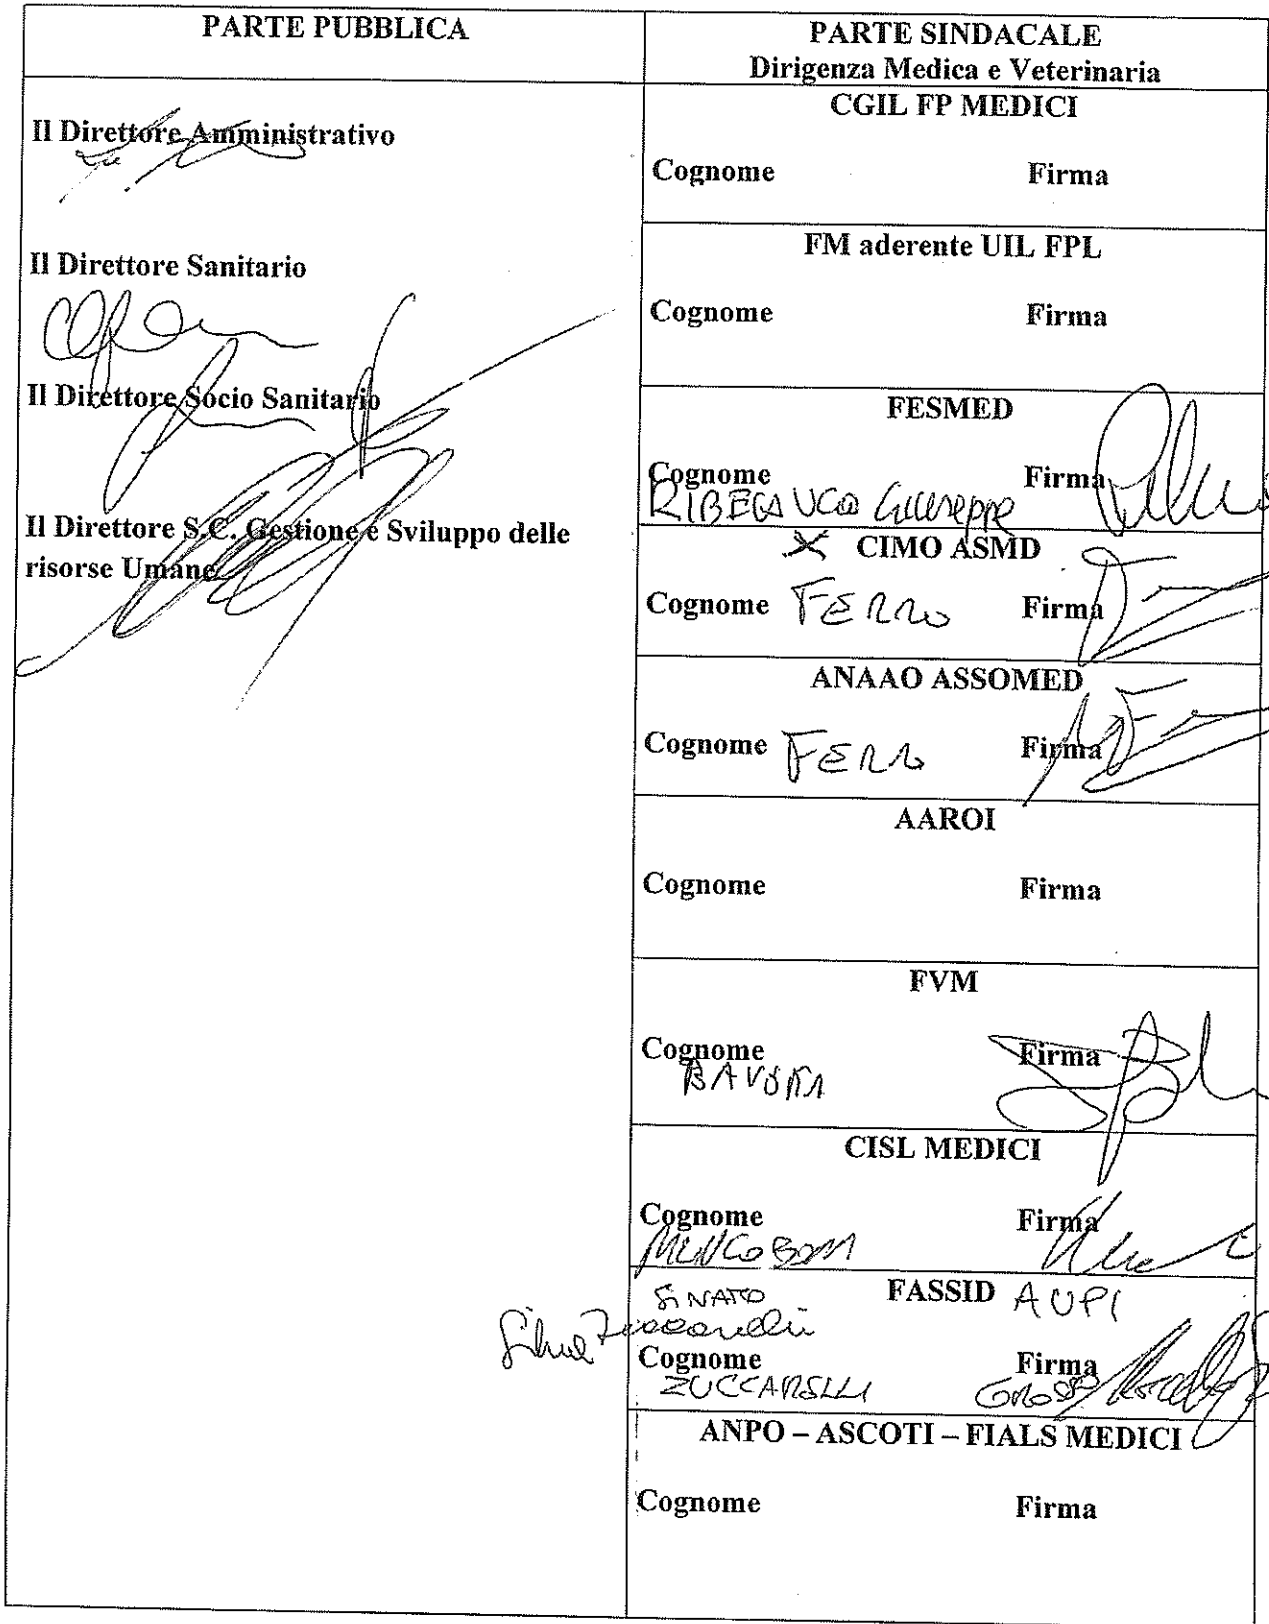 PARTE PUBBLICA
Il Direttore Amministrativo
Il Direttore Sanitario
Il Direttore Socio Sanitario
Il Direttore S.C. Gestione e Sviluppo delle
risorse Umane
PARTE SINDACALE
Dirigenza Medica e Veterinaria
CGIL FP MEDICI
Cognome Firma
FM aderente UIL FPL
Cognome Firma
FESMED
Cognome Firma
Giuseppe
X CIMO ASMD
Cognome FERRO Firma
ANAAO ASSOMED
Cognome FERRO Firma
AAROI
Cognome Firma
FVM
Cognome Firma
CISL MEDICI
Cognome Firma
FASSID AUPI
Silvia Zuccarelli
Cognome Firma
ZUCCARELLI
ANPO – ASCOTI – FIALS MEDICI
Cognome Firma